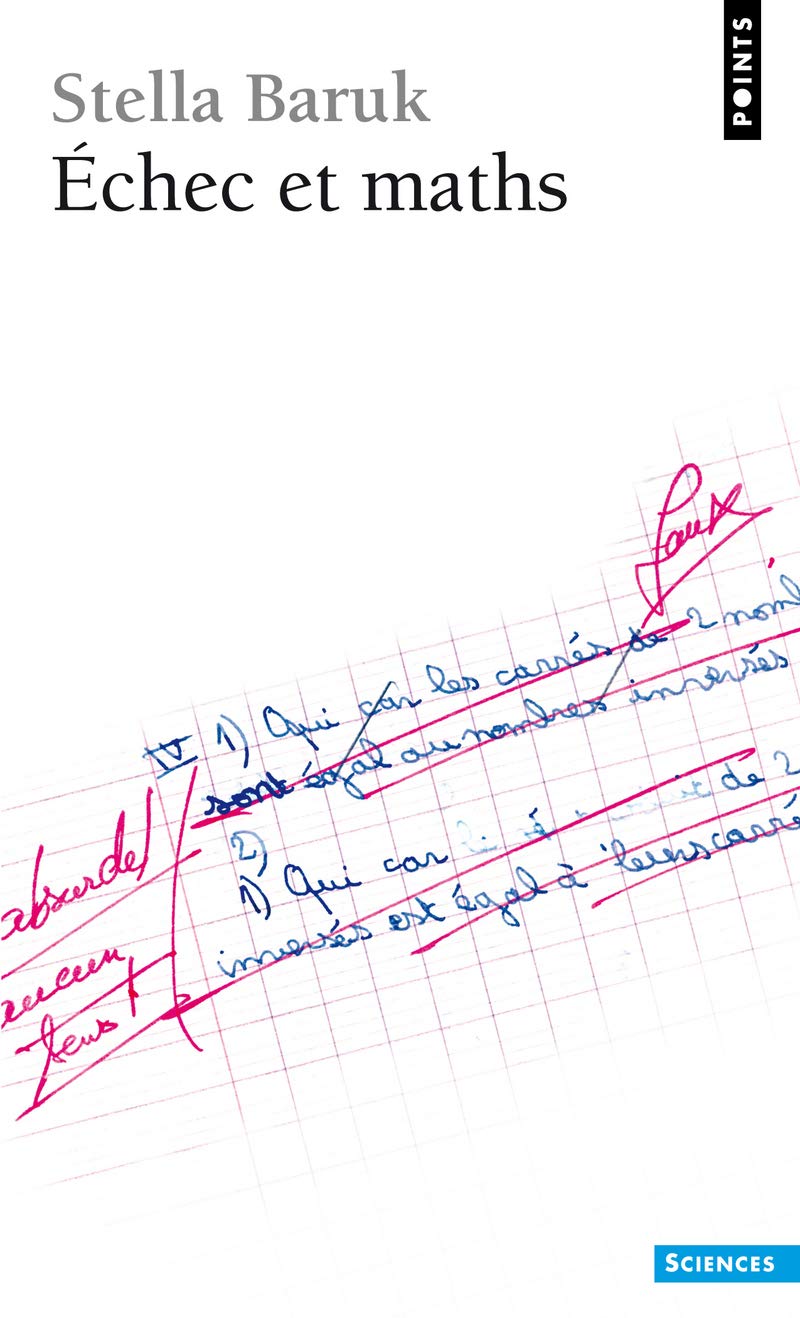 POINTS
Stella Baruk
Échec et maths
faux
IV 1) Oui car les carrés de 2 nom
sont égal au nombres inversés
2)
1) Oui car
de 2
inversés est égal à leurs carré
absurde!
aucun
sens!
SCIENCES